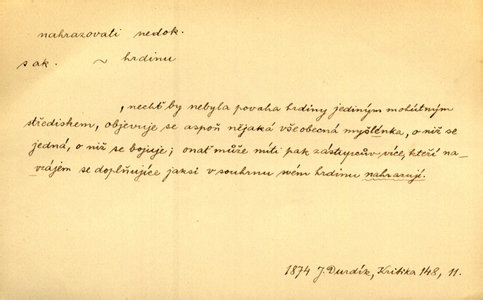 nahrazovati nedok.
s ak. ~ hrdinu
, nechť by nebyla povaha hrdiny jediným mohutným
střediskem, objevuje se aspoň nějaká všeobecná myšlénka, o niž se
jedná, o niž se bojuje; onať může míti pak zástupcův více, kteří na-
vzájem se doplňujíce jaksi v souhrnu svém hrdinu nahrazují.
1874 J. Durdík, Kritika 148, 11.